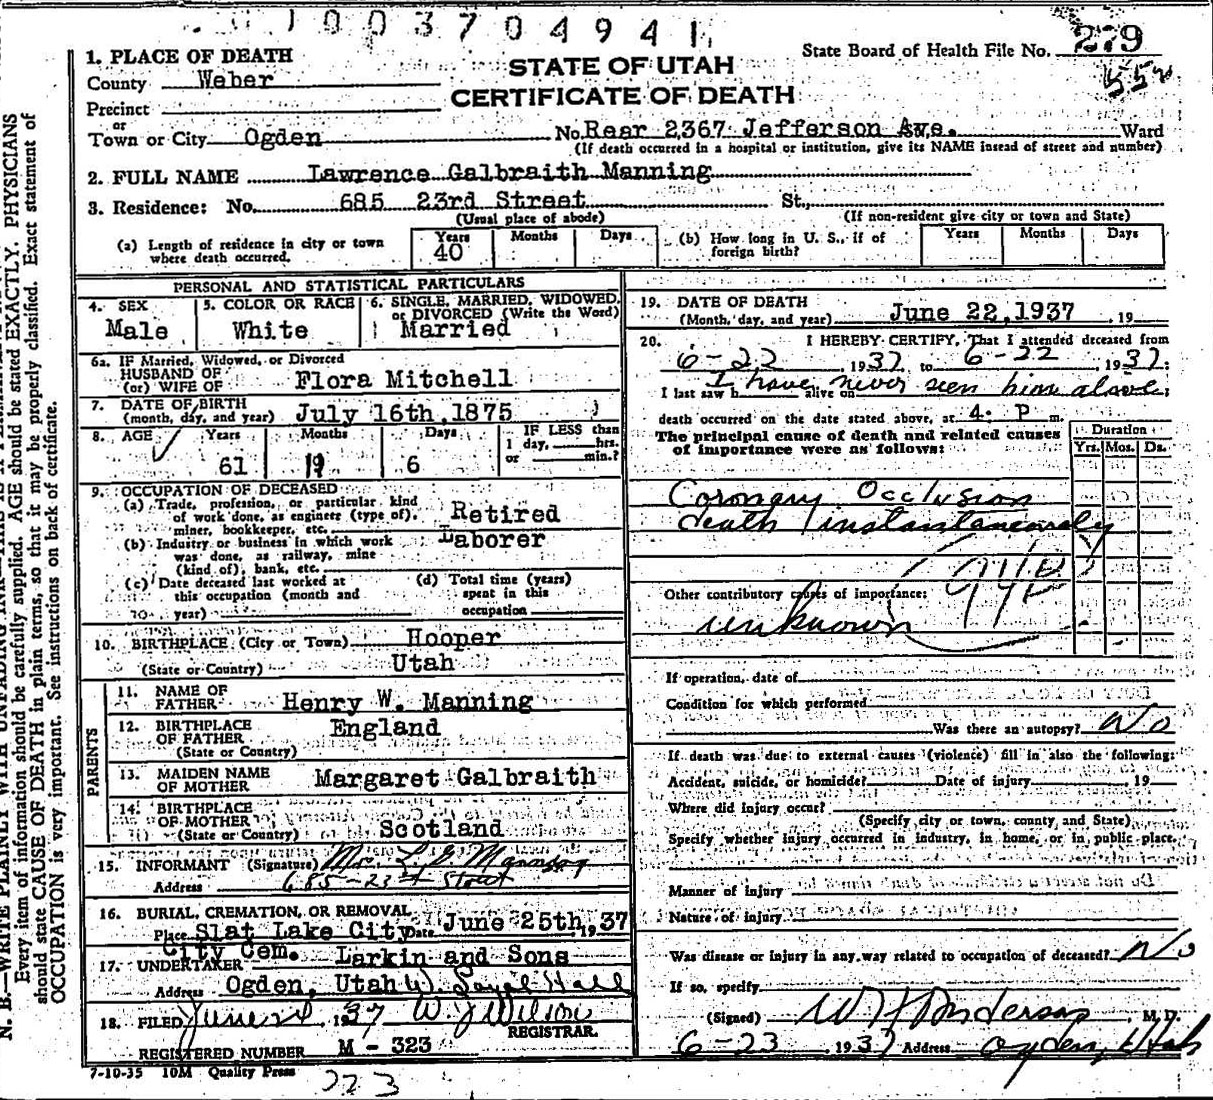 1003704941
State Board of Health File No. 279
STATE OF UTAH
CERTIFICATE OF DEATH
1. PLACE OF DEATH
County Weber
Precinct
or
Town or City Ogden No. Rear 2367 Jefferson Ave. Ward
(If death occurred in a hospital or institution, give its NAME insead of street and number)
2. FULL NAME Lawrence Galbraith Manning
3. Residence: No. 685 23rd Street St.,
(Usual place of abode) (If non-resident give city or town and State)
(a) Length of residence in city or town where death occurred. Years 40 Months Days
(b) How long in U. S., if of foreign birth? Years Months Days
PERSONAL AND STATISTICAL PARTICULARS
4. SEX Male
5. COLOR OR RACE White
6. SINGLE, MARRIED, WIDOWED, or DIVORCED (Write the Word) Married
6a. IF Married, Widowed, or Divorced
HUSBAND OF
(or) WIFE OF Flora Mitchell
7. DATE OF BIRTH
(month, day, and year) July 16th, 1875
8. AGE Years 61 Months Days 6 IF LESS than 1 day, hrs. or min.?
9. OCCUPATION OF DECEASED
(a) Trade, profession, or particular kind of work done, as engineer (type of), miner, bookkeeper, etc. Retired
(b) Industry or business in which work was done, as railway, mine (kind of), bank, etc. Laborer
(c) Date deceased last worked at this occupation (month and year)
(d) Total time (years) spent in this occupation
10. BIRTHPLACE (City or Town) Hooper
(State or Country) Utah
PARENTS
11. NAME OF FATHER Henry W. Manning
12. BIRTHPLACE OF FATHER England
(State or Country)
13. MAIDEN NAME OF MOTHER Margaret Galbraith
14. BIRTHPLACE OF MOTHER
(State or Country) Scotland
15. INFORMANT (Signature) Mrs. L. G. Manning
Address 685-23rd Street
16. BURIAL, CREMATION, OR REMOVAL
Place Slat Lake City Date June 25th, 1937
City Cem.
17. UNDERTAKER Larkin and Sons
Address Ogden, Utah
18. FILED June 1937 W J Wilson
REGISTRAR.
REGISTERED NUMBER M - 323
7-10-35 10M Quality Press
223
19. DATE OF DEATH
(Month, day, and year) June 22, 1937, 19
20. I HEREBY CERTIFY, That I attended deceased from
6-22, 1937, to 6-22, 1937.
I last saw h alive on I have never seen him alive;
death occurred on the date stated above, at 4: P m.
The principal cause of death and related causes of importance were as follows:
Duration
Yrs. Mos. Ds.
Coronary Occlusion
death instantaneously
94B
Other contributory causes of importance:
unknown
If operation, date of
Condition for which performed
Was there an autopsy? No
If death was due to external causes (violence) fill in also the following:
Accident, suicide, or homicide? Date of injury 19
Where did injury occur?
(Specify city or town, county and State)
Specify whether injury occurred in industry, in home, or in public place.
Manner of injury
Nature of injury
Was disease or injury in any way related to occupation of deceased? No
If so, specify
(Signed) W H Anderson, M. D.
6-23 1937 Address Ogden, Utah
Every item of information should be carefully supplied. AGE should be stated EXACTLY. PHYSICIANS
should state CAUSE OF DEATH in plain terms, so that it may be properly classified. Exact statement of
OCCUPATION is very important. See instructions on back of certificate.